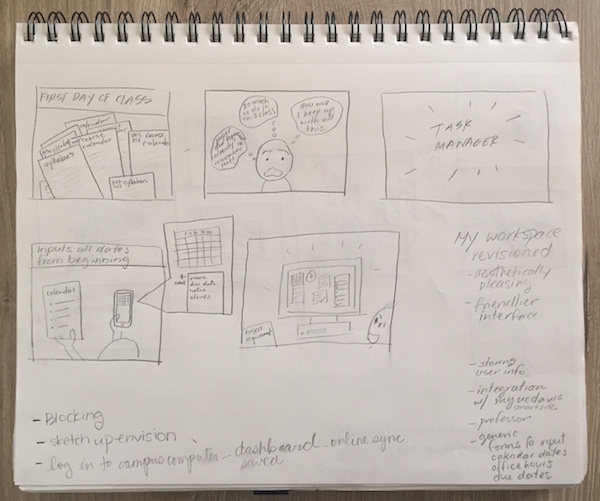 FIRST DAY OF CLASS
calendar
course
calendar
syllabus
course
calendar
syllabus
So much
to do in
this class
How will
I keep up
with all
this
TASK
MANAGER
Inputs all dates
from beginning
calendar
name
due date
notes
alerts
project
requirement
My workspace
revisioned
- aesthetically
pleasing
- friendlier
interface
- storing
user info
- integration
w/ myucdavis
smartsite
- professor
- generic
forms to input
calendar dates
office hours
due dates
- Blocking
- sketch up-envision
- log in to campus computer - dashboard - online sync
saved